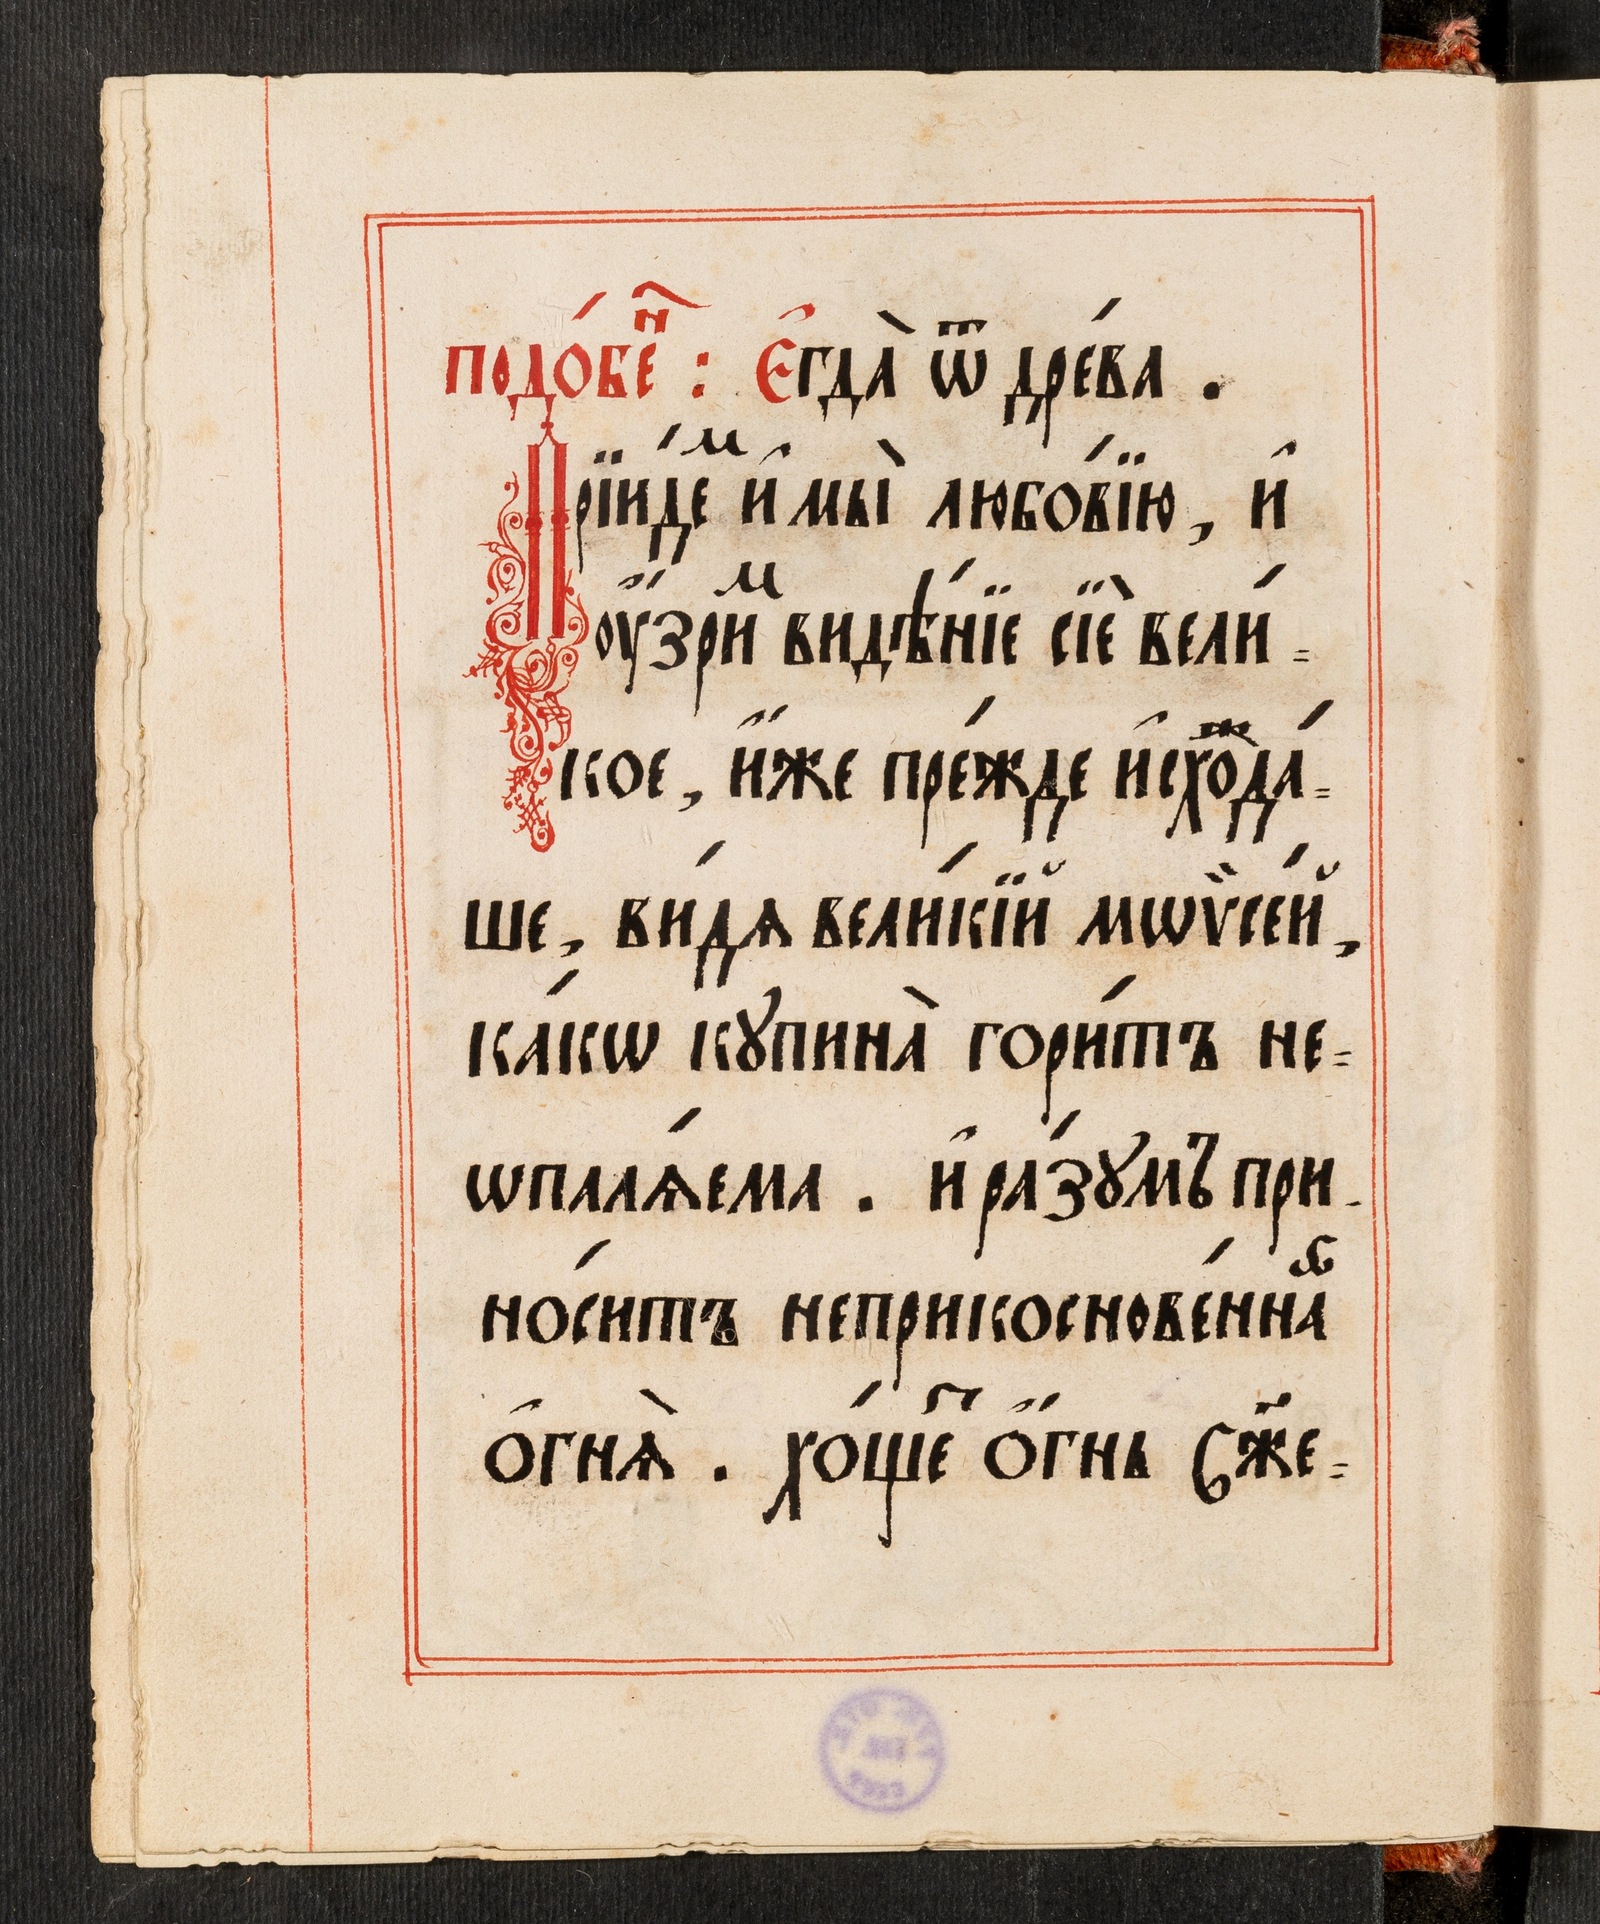 подо́беⷩ҇ : Є҆гда̀ ѿ дре́ва .
Прїи́деⷨ и҆ мы̀ любо́вїю, и҆
оу҆́зриⷨ видѣ́нїе сїѐ вели́=
кое, и҆́же пре́жде и҆схода́=
ше, видѧ вели́кїй мѡѷсе́й,
ка́кѡ кꙋпина̀ гори́тъ не=
ѡпалѧ́ема . и҆ ра́зꙋмъ при-
но́ситъ неприкоснове́ннаⷢ
ѻ҆гнѧ̀ . хо́щеⷮ ѻ҆́гнь с̾же=